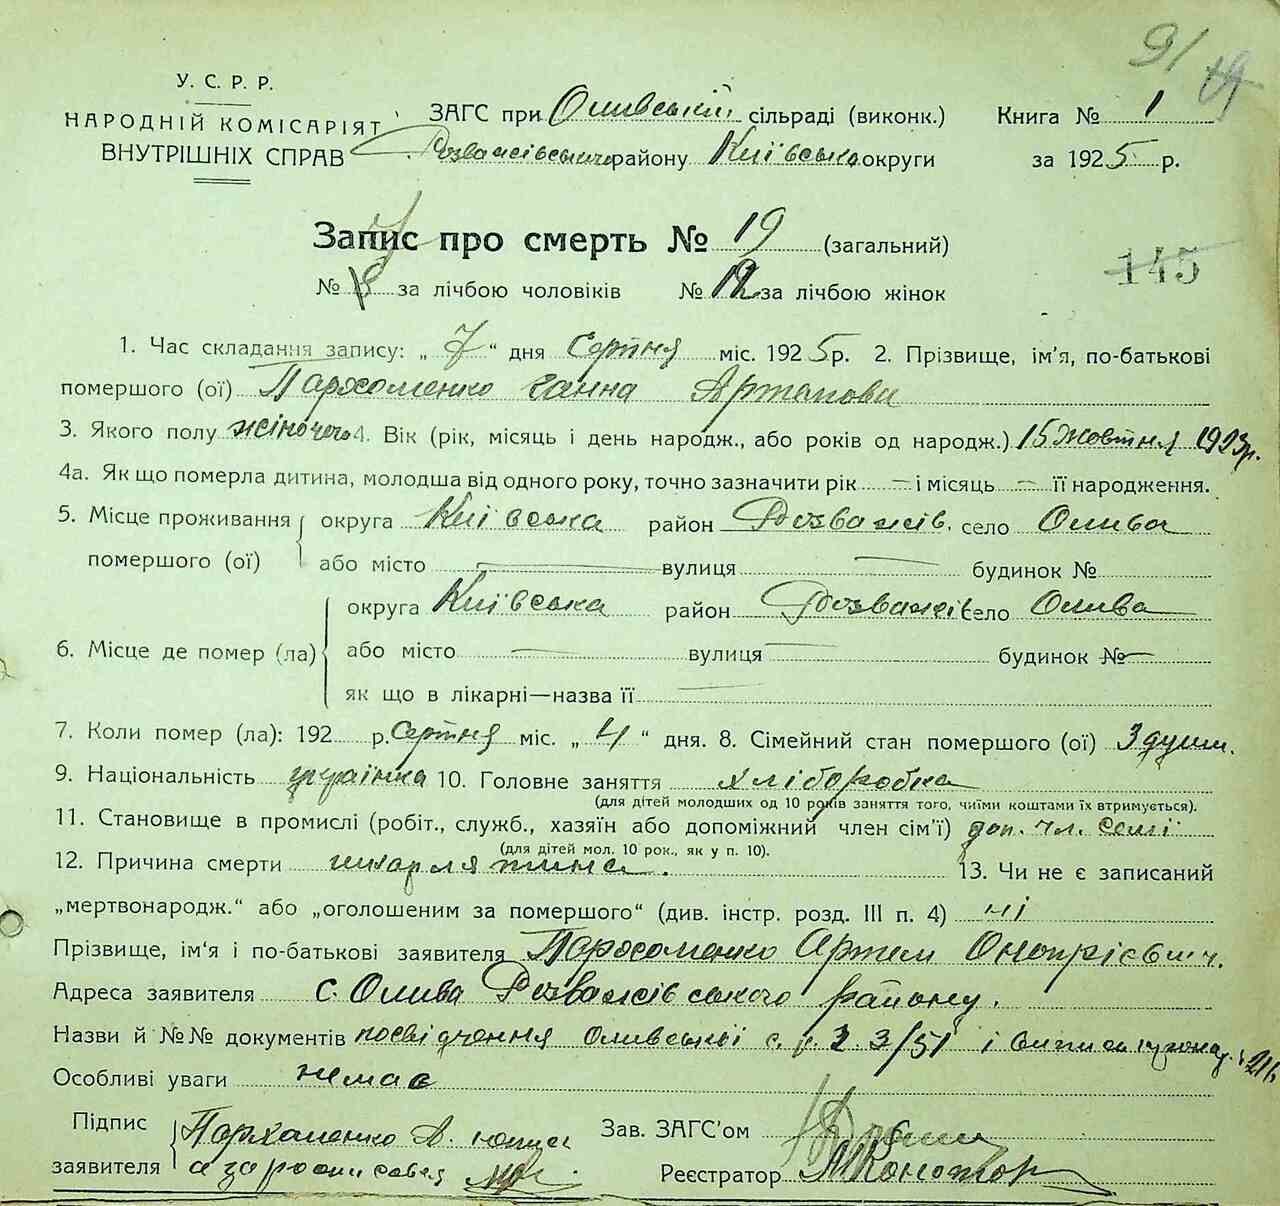 91
У. С. Р. Р.
НАРОДНІЙ КОМІСАРІЯТ
ВНУТРІШНІХ СПРАВ
ЗАГС при Оливській сільраді (виконк.)
Розважівського району Київсько округи
Книга № 1
за 1925 р.
Запис про смерть № 19 (загальний)
№ за лічбою чоловіків № 12 за лічбою жінок
145
1. Час складання запису: „ 7 “ дня Серпня міс. 1925 р. 2. Прізвище, ім’я, по-батькові
помершого (ої) Пархоменко Ганна Артемови
3. Якого полу жіночого 4. Вік (рік, місяць і день народж., або років од народж.) 15 жовтня 1923 р.
4а. Як що померла дитина, молодша від одного року, точно зазначити рік — і місяць — її народження.
5. Місце проживання помершого (ої) округа Київська район Розважів. село Олива
або місто — вулиця — будинок №
6. Місце де помер (ла) округа Київська район Розважів село Олива
або місто — вулиця — будинок № —
як що в лікарні—назва її —
7. Коли помер (ла): 192 р. Серпня міс. „ 4 “ дня. 8. Сімейний стан помершого (ої) 3 душ.
9. Національність українка 10. Головне заняття хліборобка
(для дітей молодших од 10 років заняття того, чиїми коштами їх втримується).
11. Становище в промислі (робіт., служб., хазяїн або допоміжний член сім’ї) доп. чл. семї
(для дітей мол. 10 рок., як у п. 10).
12. Причина смерти шкарлятина. 13. Чи не є записаний
„мертвонародж.“ або „оголошеним за помершого“ (див. інстр. розд. III п. 4) ні
Прізвище, ім‘я і по-батькові заявителя Пархоменко Артем Онопрієвич.
Адреса заявителя с. Олива Розважівського району.
Назви й №№ документів посвідчення Оливської с. р. 3/51 і
Особліві уваги немає
Підпис заявителя Пархоменко А.
а за
Зав. ЗАГС’ом
Реєстратор